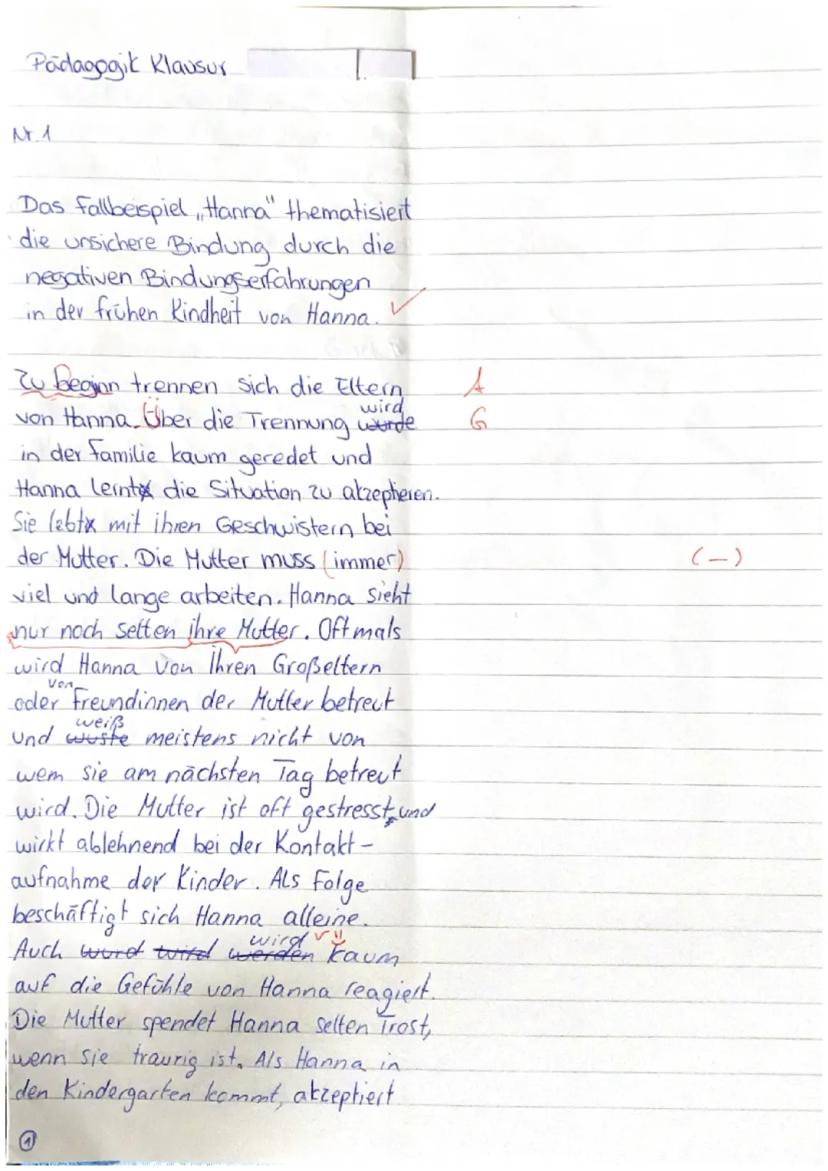 Pädagogik Klausur
Nr. 1
Das Fallbeispiel „Hanna" thematisiert
die unsichere Bindung durch die
negativen Bindungserfahrungen
in der frühen Kindheit von Hanna. ✓
Zu Beginn trennen sich die Eltern A
von Hanna. Über die Trennung wurde wird G
in der Familie kaum geredet und
Hanna lernt die Situation zu akzeptieren.
Sie lebt mit ihren Geschwistern bei
der Mutter. Die Mutter muss (immer) (–)
viel und lange arbeiten. Hanna sieht
nur noch selten ihre Mutter. Oftmals
wird Hanna von Ihren Großeltern
oder von Freundinnen der Mutter betreut
und wuste weiß meistens nicht von
wem sie am nächsten Tag betreut
wird. Die Mutter ist oft gestresst und
wirkt ablehnend bei der Kontakt-
aufnahme der Kinder. Als Folge
beschäftigt sich Hanna alleine.
Auch wurd wird werden wird kaum
auf die Gefühle von Hanna reagiert.
Die Mutter spendet Hanna selten Trost,
wenn sie traurig ist. Als Hanna in
den Kindergarten kommt, akzeptiert
1